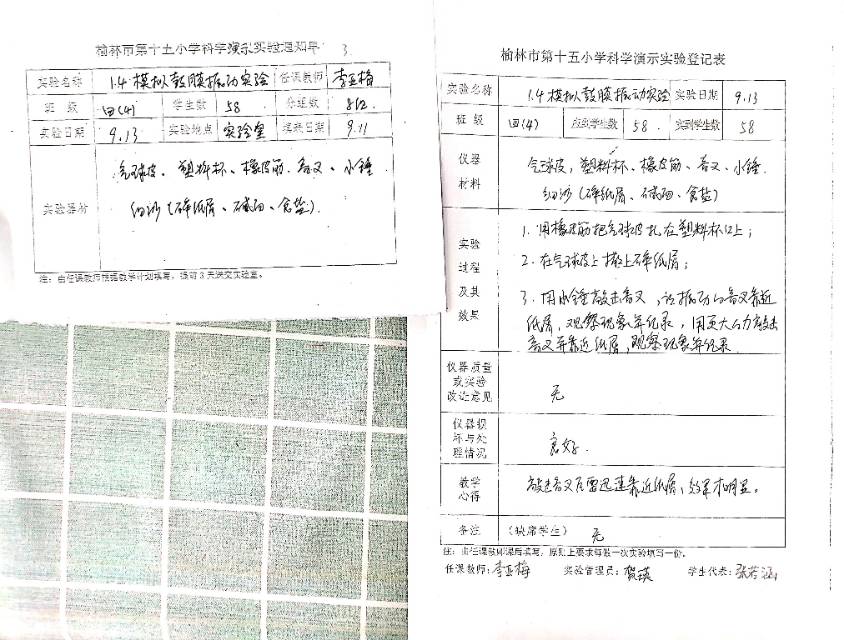 榆林市第十五小学科学演示实验通知单 3.
实验名称 1.4模拟鼓膜振动实验 任课教师 李亚梅
班 级 四(4) 学生数 58 分组数 8组
实验日期 9.13 实验地点 实验室 填表日期 9.11
实验器材
气球皮、塑料杯、橡皮筋、音叉、小锤
细沙(碎纸屑、碱面、食盐)
注:由任课教师根据教学计划填写,提前3天送交实验室。
榆林市第十五小学科学演示实验登记表
实验名称 1.4模拟鼓膜振动实验 实验日期 9.13
班 级 四(4) 应到学生数 58. 实到学生数 58
仪器
材料
气球皮,塑料杯、橡皮筋、音叉、小锤.
细沙(碎纸屑、碱面、食盐)
实验
过程
及其
效果
1.用橡皮筋把气球皮扎在塑料杯口上;
2.在气球皮上撒上碎纸屑;
3.用小锤敲击音叉,让振动的音叉靠近
纸屑,观察现象并纪录,用更大的力敲击
音叉并靠近纸屑,观察现象并纪录.
仪器质量
或实验
改让意见
无
仪器损
坏与处
理情况
良好.
教学
心得
敲击音叉后需迅速靠近纸屑,效果才明显。
备注 (缺席学生) 无
注:由任课教师课后填写,原则上要求每做一次实验填写一份。
任课教师:李亚梅 实验管理员:贺瑛 学生代表:张若涵